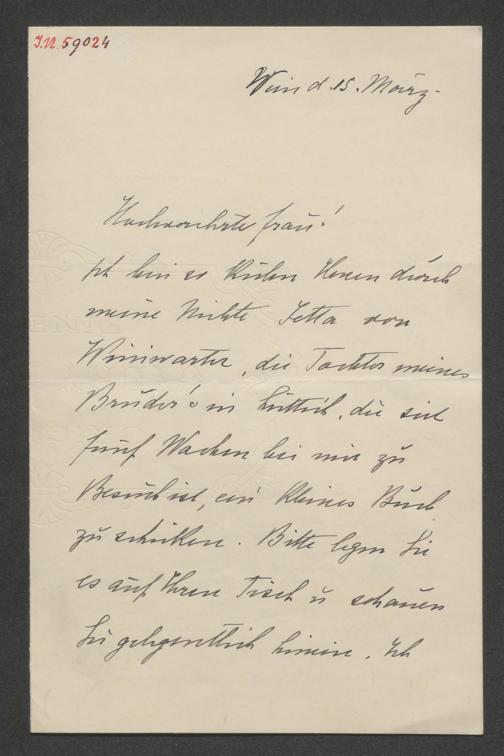 J.N. 59024
Wien d. 15. März.
Hochverehrte Frau!
Ich bin so kühn Ihnen durch
meine Nichte Jetta von
Winiwarter, die Tochter meines
Bruder's in Lüttich, die seit
fünf Wochen bei mir zu
Besuch ist, ein kleines Buch
zu schicken. Bitte legen Sie
es auf Ihren Tisch u schauen
Sie gelegentlich hinein. Ich